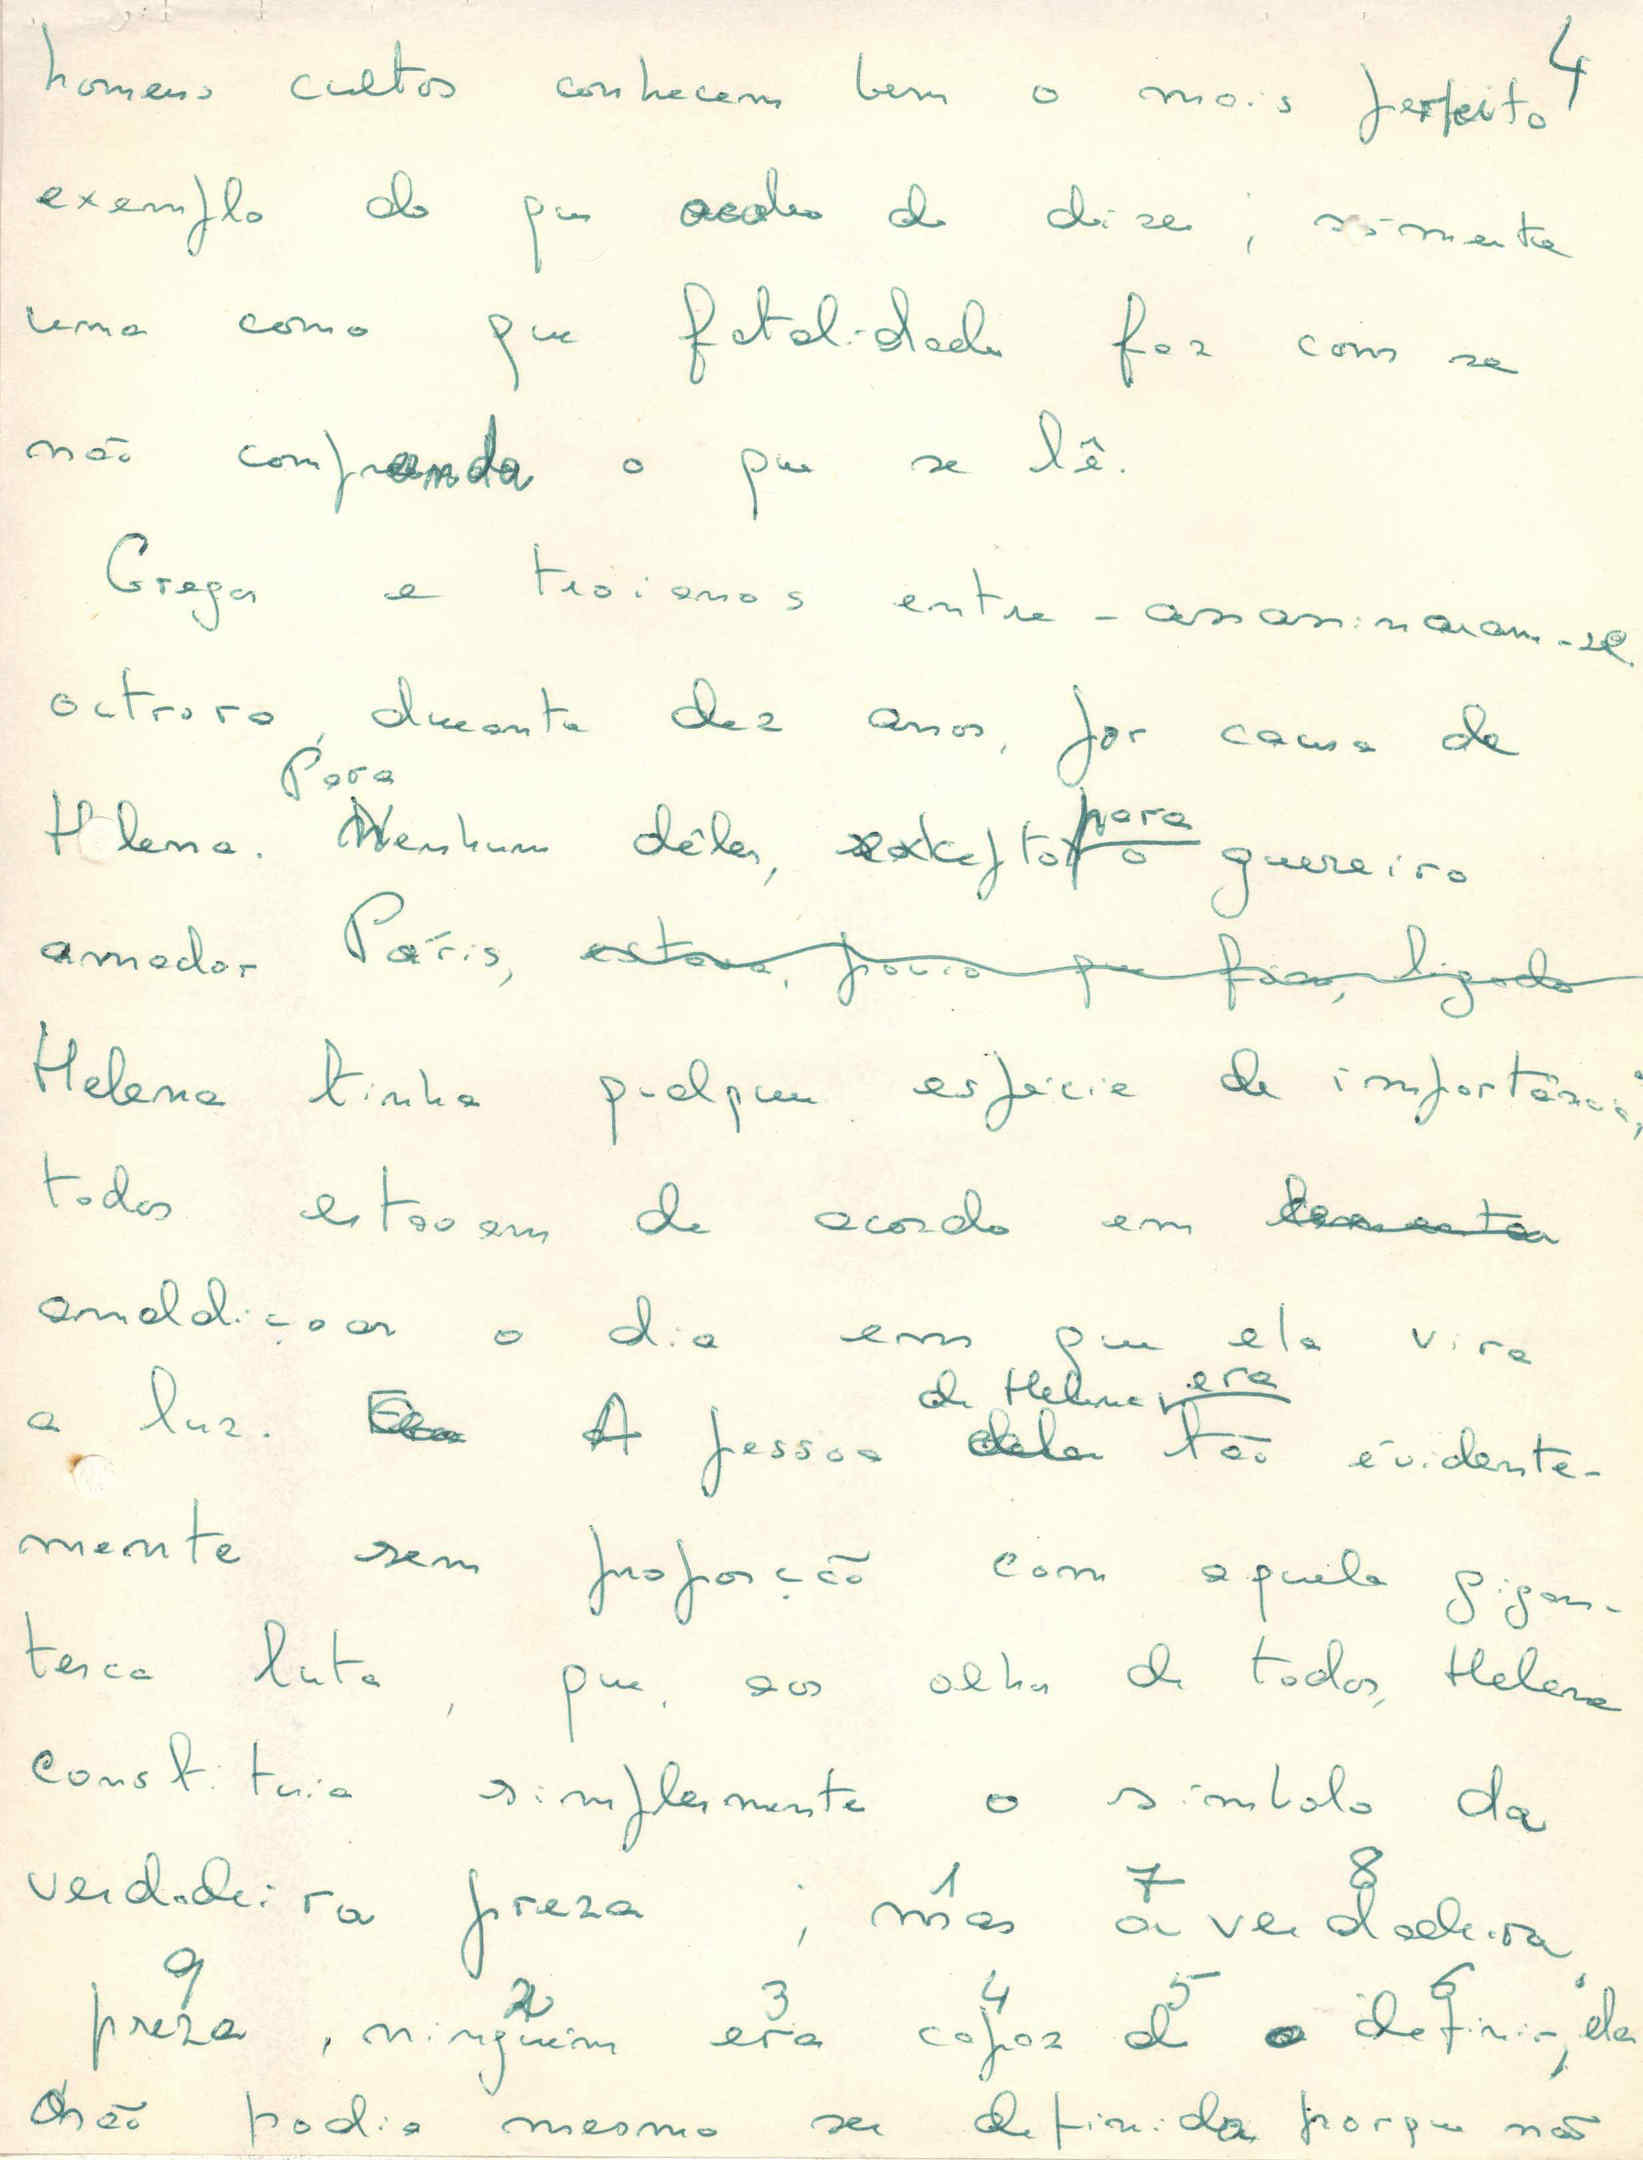 4
homens cultos conhecem bem o mais perfeito
exemplo do que acabo de dizer; sòmente
uma como que fatalidade faz com se
não compreenda o que se lê.
Gregos e troianos entre-assassinaram-se
outrora, durante dez anos, por causa de
Para
para
Helena. Nenhum dêles, excepto o guerreiro
amador Páris, estava, pouco que fôsse, ligado
Helena tinha qualquer espécie de importância;
todos estavam de acordo em lamentar
amaldiçoar o dia em que ela vira
de Helena era
a luz. A pessoa dela tão evidente-
mente sem proporção com aquela gigan-
tesca luta, que, aos olhos de todos, Helena
constituia simplesmente o simbolo da
1 7 8
verdadeira preza; mas a verdadeira
9 2 3 4 5 6
preza, ninguém era capaz d a definir; ela
não podia mesmo ser definida porque não